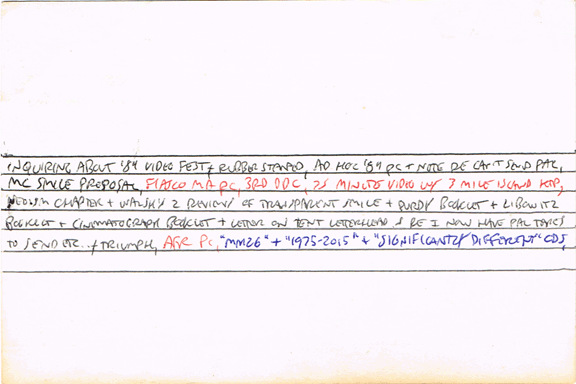 INQUIRING ABOUT '89 VIDEO FEST, RUBBER STAMPED, AD HOC '89 PC + NOTE RE CAN'T SEND PAL,
MC SMILE PROPOSAL, FIASCO MA PC, 3RD DDC, 75 MINUTE VIDEO W/ 3 MILE ISLAND
NEOISM CHAPTER + WALSH'S 2 REVIEWS OF TRANSPARENT SMILE + PURDY BOOKLET + LIBOWITZ
BOOKLET + CINEMATOGRAPH BOOKLET + LETTER ON TENT LETTERHEAD RE I NOW HAVE PAL TAPES
TO SEND ETC. + TRIUMPH, PC, "MM26" + "1975-2015" + "SIGNIFICANTLY DIFFERENT" CDS,